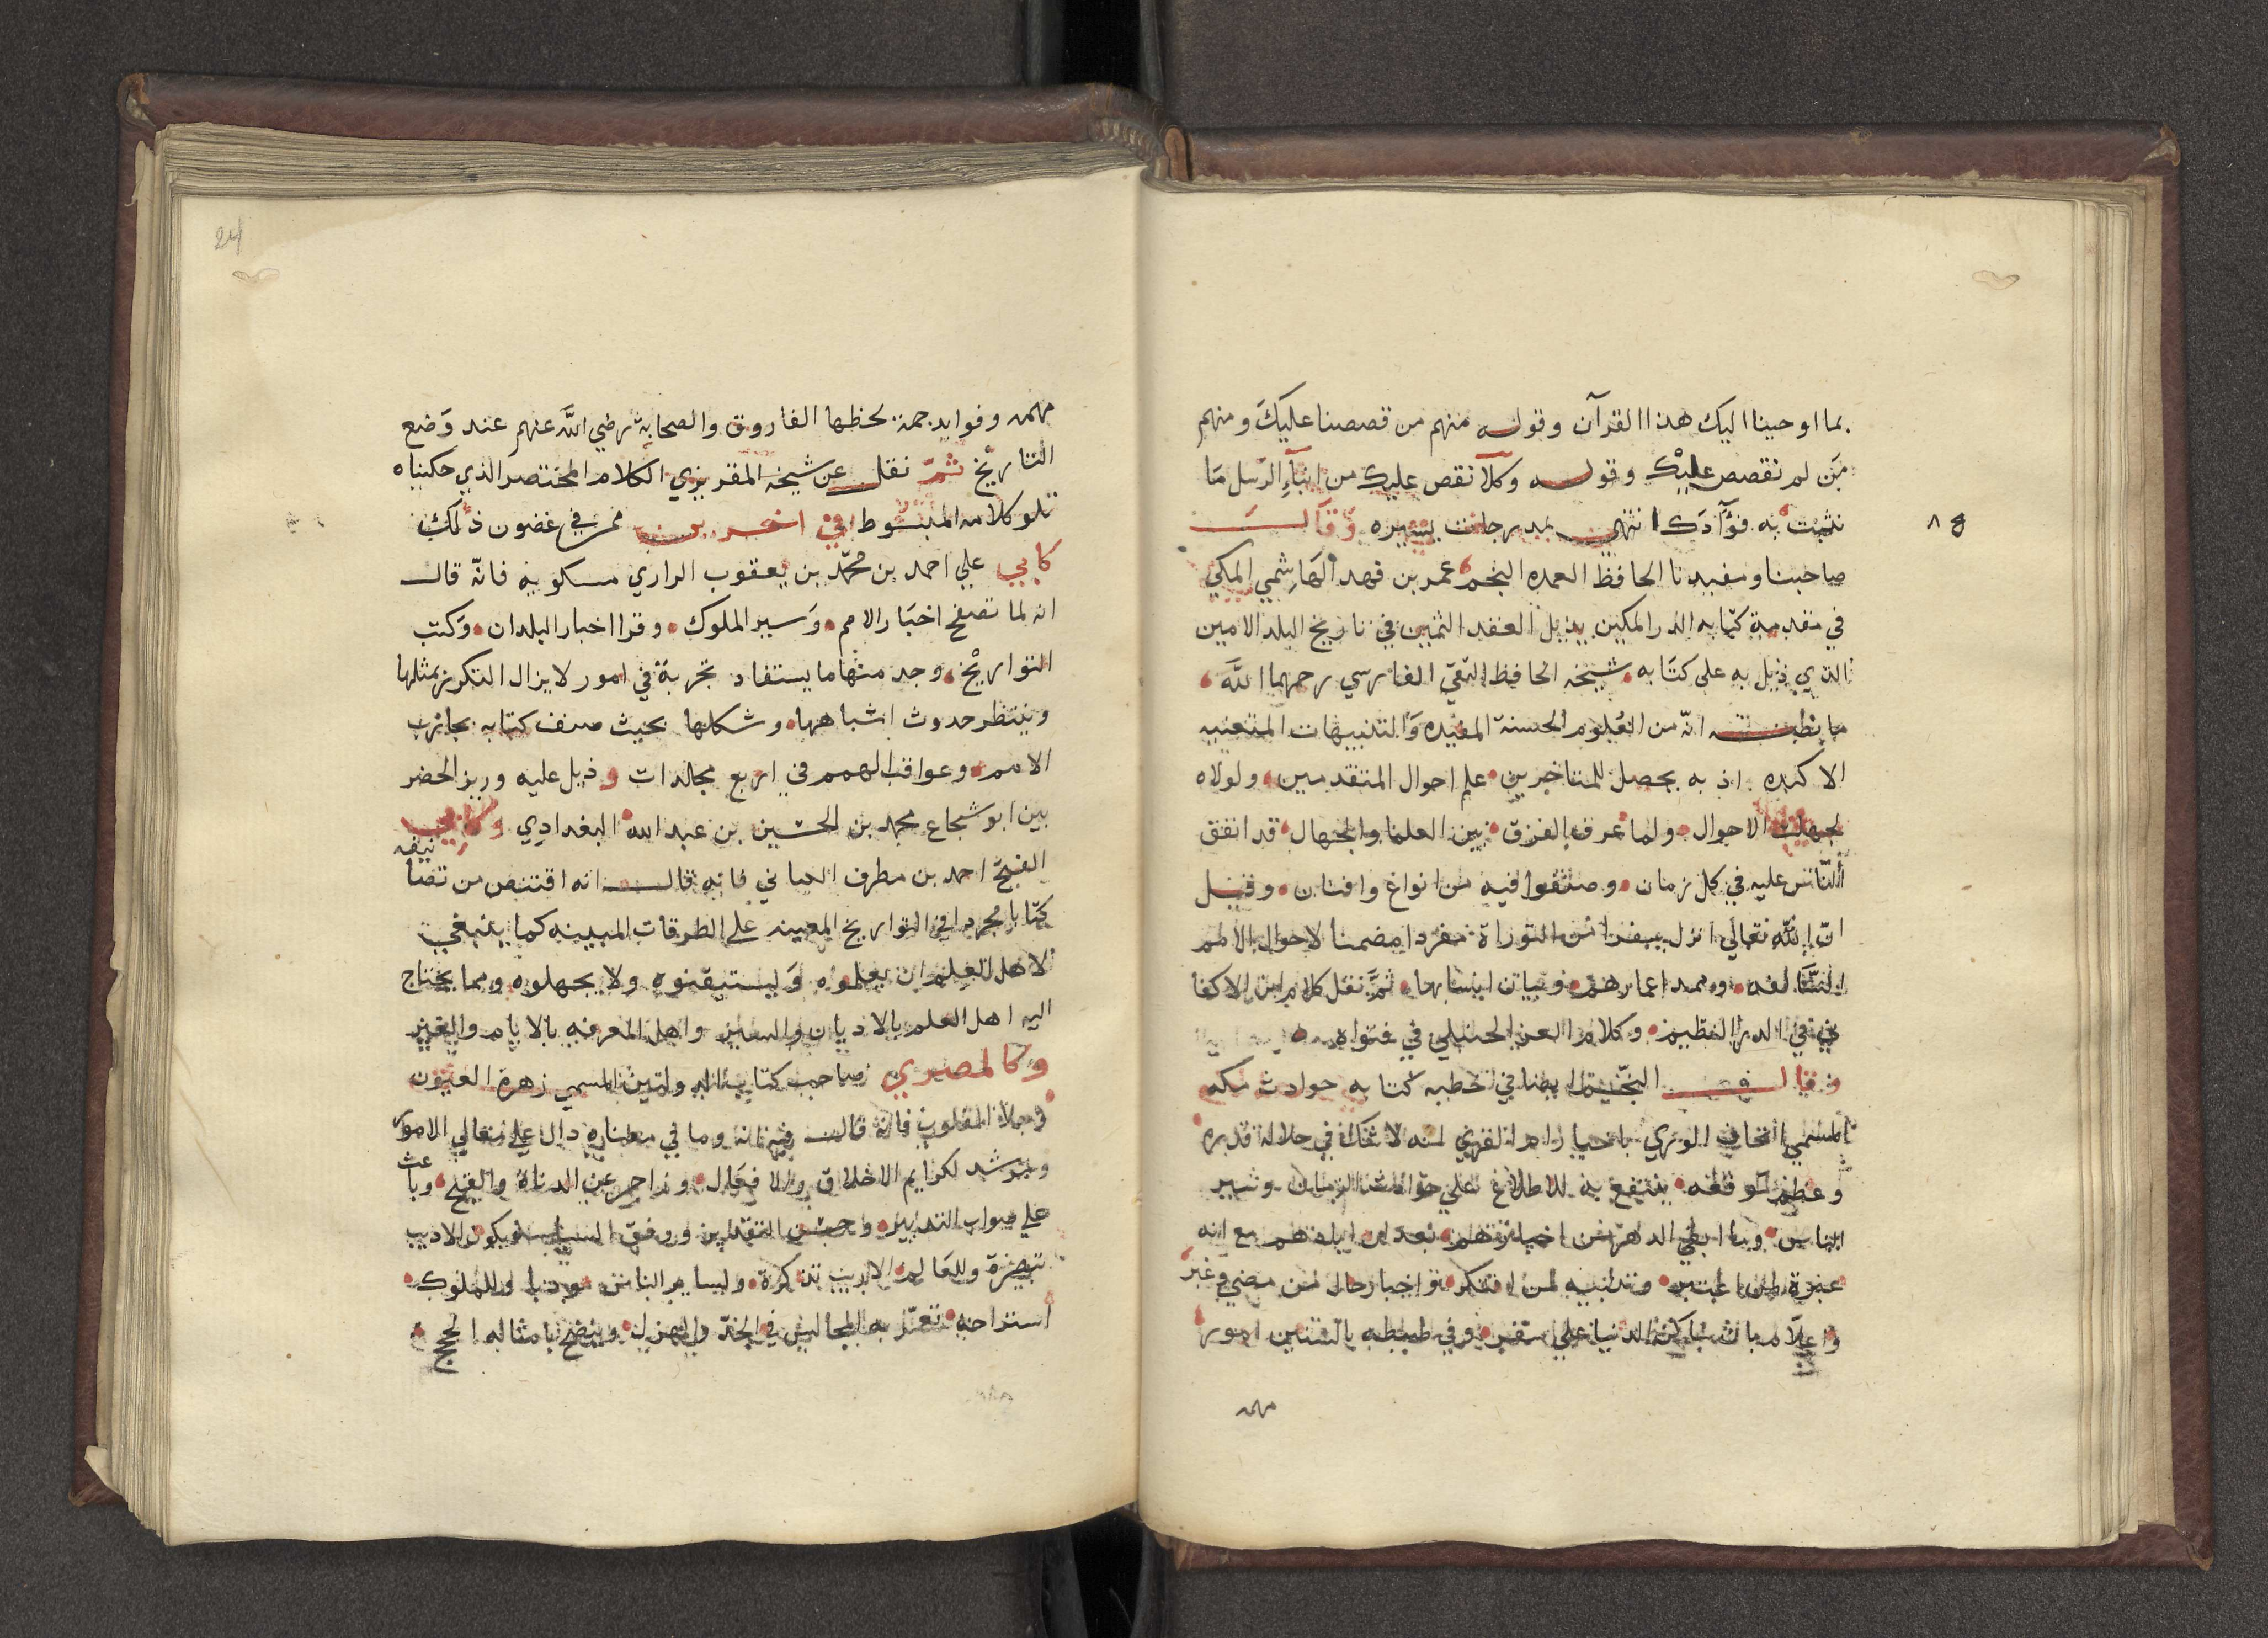 بما اوحينا اليك هذا القرآن وقوله منهم من قصصنا عليك ومنهم
من لم نقصص عليك وقوله وكلا نقص عليك من انباء الرسل ما
نثبت به فؤادك انتهى يسيره وقال
صاحبنا ومفيدنا الحافظ العمده النجم عمر بن فهد الهاشمي المكي
في مقدمة كتابه الدر الكمين بذيل العقد الثمين في تاريخ البلد الامين
الذي ذيل به على كتابه شيخه الحافظ التقي الفارسي رحمهما الله
ما انه من العلوم الحسنة المفيده والتنبيهات المتعنيه
الاكيده اذ به يحصل للمتاخرين علم احوال المتقدمين ولولاه
لجهلت الاحوال ولما عرف الفرق بين العلما والجهال قد اتفق
الناس عليه في كل زمان وصنفوا فيه من انواع وافنان وقيل
ان الله تعالى انزل سفرا من التوراة مفردا مضمنا لاحوال الامم
السالفه ومدد اعمارهم وبيان انسابها ثم نقل كلام ابن الاكفا
ني في الدر النظيم وكلام العز الحنبلي في فتواه
وقال النجم ايضا في خطبه كتابه حوادث مكه
المسمى اتحاف الورى باخبار ام القرى انه لا شك في جلالة قدره
وعظم موقعه ينتفع به للاطلاع على حوادث الزمان وسير
الناس وما ابقى الدهر من اخبارهم بعد ان ابادهم مع انه
عبرة لمن اعتبر وتنبيه لمن افتكر واخبار حال من مضى وغبر
واعلام بان ساكن الدنيا على سفر وفي ضبطه بالسنين امور
مهمه
مهمه وفوايد جمة لحظها الفاروق والصحابة رضي الله عنهم عند وضع
التاريخ ثم نقل عن شيخه المقريزي الكلام المختصر الذي حكيناه
تلو كلامه المبسوط في اخرين ممن في غضون ذلك
كابي علي احمد بن محمد بن يعقوب الرازي مسكويه فانه قال
انه لما تصفح اخبار الامم وسير الملوك وقرا اخبار البلدان وكتب
التواريخ وجد منها ما يستفاد تجربة في امور لا يزال التكرر بمثلها
وينتظر حدوث اشباهها وشكلها بحيث صنف كتابه تجارب
الامم وعواقب الهمم في اربع مجلدات وذيل عليه وزير الحضر
بين ابو شجاع محمد بن الحسين بن عبد الله البغدادي وكابي
الفتح احمد بن مطرف فانه قال انه اقتنص من تصا نيفه
كتابا مجردا في التواريخ المعينه على الطرقات المبينه كما ينبغي
لاهل العلم ان يعلموه ويستيقنوه ولا يجهلوه ومما يحتاج
اليه اهل العلم بالاديان والسير واهل المعرفه بالايام والغير
وكالمصري صاحب كتاب المسمى زهرة العيون
وجلاء القلوب فانه قال وما في معناه دال على معالي الامور
ومرشد لكرايم الاخلاق والافعال وزاجر عن الدناة والقبح وباعث
على صواب التدبير وحسن التقدير ورفق السياسه يكون للاديب
تبصرة وللعالم الاريب تذكرة ولساير الناس مودبا وللملوك
استراحه تعمر به المجالس في الجد والهزل ويتضح بامثاله الحجج